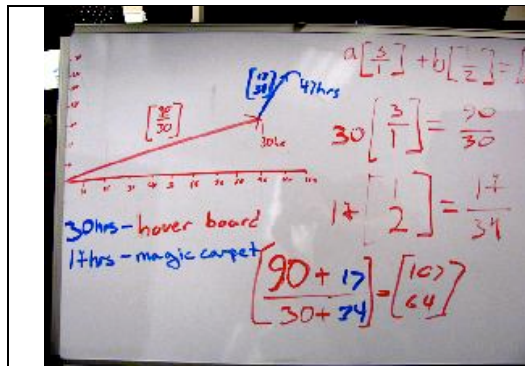 [90/30]
[17/34]
47hrs
30hrs
a[3/1] + b[1/2] = [
30[3/1] = 90/30
17[1/2] = 17/34
30hrs - hover board
17hrs - magic carpet
[90 + 17/30 + 34] = [107/64]